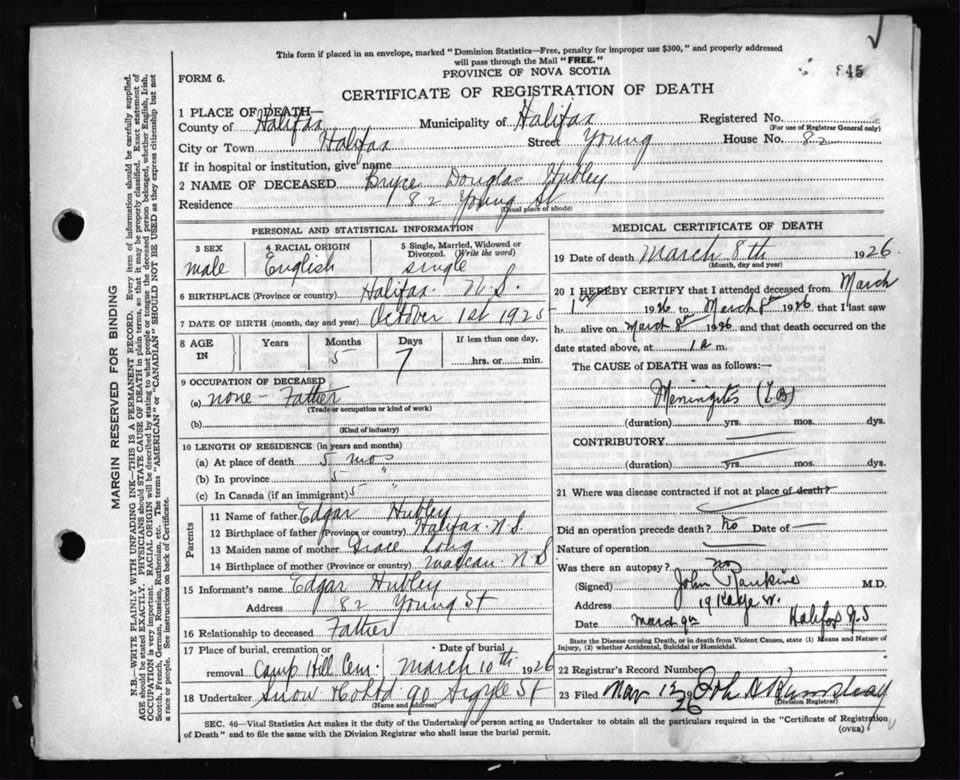 This form if placed in an envelope, marked "Dominion Statistics—Free, penalty for improper use $300," and properly addressed
will pass through the Mail "FREE."
PROVINCE OF NOVA SCOTIA
845
FORM 6.
CERTIFICATE OF REGISTRATION OF DEATH
1 PLACE OF DEATH—
County of Halifax Municipality of Halifax Registered No.
(For use of Registrar General only)
City or Town Halifax Street Young House No. 82
If in hospital or institution, give name
2 NAME OF DECEASED Bryce Douglas Hubley
Residence 82 Young St
(Usual place of abode)
PERSONAL AND STATISTICAL INFORMATION
3 SEX 4 RACIAL ORIGIN 5 Single, Married, Widowed or
Divorced. (Write the word)
male English single
6 BIRTHPLACE (Province or country) Halifax N.S.
7 DATE OF BIRTH (month, day and year) October 1st 1925
8 AGE IN Years Months Days If less than one day,
5 7 hrs. or min.
9 OCCUPATION OF DECEASED
(a) none - Father
(Trade or occupation or kind of work)
(b)
(Kind of industry)
10 LENGTH OF RESIDENCE (in years and months)
(a) At place of death 5 mos
(b) In province 5 "
(c) In Canada (if an immigrant) 5 "
Parents
11 Name of father Edgar Hubley
12 Birthplace of father (Province or country) Halifax N.S.
13 Maiden name of mother Grace Long
14 Birthplace of mother (Province or country) N S
15 Informant's name Edgar Hubley
Address 82 Young St
16 Relationship to deceased Father
17 Place of burial, cremation or Date of burial
removal Camp Hill Cem. March 10th 1926
18 Undertaker Snow & Co Ltd 90 Argyle St
(Name and address)
MEDICAL CERTIFICATE OF DEATH
19 Date of death March 8th 1926
(Month, day and year)
20 I HEREBY CERTIFY that I attended deceased from March
1st 1926 to March 8th 1926 that I last saw
h. alive on March 8th 1926 and that death occurred on the
date stated above, at 1 a m.
The CAUSE of DEATH was as follows:—
Meningitis (T.B)
(duration) yrs. mos. dys.
CONTRIBUTORY
(duration) yrs. mos. dys.
21 Where was disease contracted if not at place of death?
Did an operation precede death? No Date of —
Nature of operation
Was there an autopsy? no
(Signed) John Rankine M.D.
Address 19
Date March 9th Halifax N.S
State the Disease causing Death, or in death from Violent Causes, state (1) Means and Nature of
Injury, (2) whether Accidental, Suicidal or Homicidal.
22 Registrar's Record Number
23 Filed Mar 12 1926 John
(Division Registrar)
SEC. 46—Vital Statistics Act makes it the duty of the Undertaker or person acting as Undertaker to obtain all the particulars required in the "Certificate of Registration
of Death" and to file the same with the Division Registrar who shall issue the burial permit. (OVER)
MARGIN RESERVED FOR BINDING
N.B.—WRITE PLAINLY WITH UNFADING INK—THIS IS A PERMANENT RECORD. Every item of information should be carefully supplied.
AGE should be stated EXACTLY. PHYSICIANS should STATE CAUSE OF DEATH in plain terms, so that it may be properly classified. Exact statement of
OCCUPATION is very important. RACIAL ORIGIN will be described by stating to what people or tongue the deceased person belonged, whether English, Irish,
Scotch, French, German, Russian, Ruthenian, etc. The terms "AMERICAN" or "CANADIAN" SHOULD NOT BE USED as they express citizenship but not
a race or people. See instructions on back of Certificate.